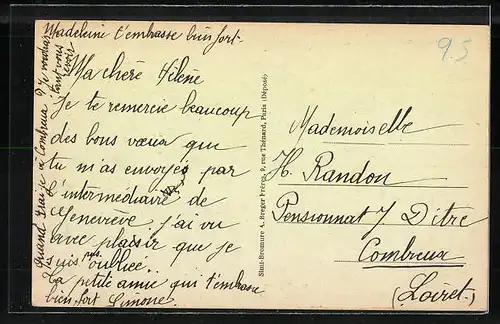 Madeleine t'embrasse bien fort-
Ma chère Hélène
Je te remercie beaucoup
des bons voeux que
tu m'as envoyés par
l'intermédiaire de
Geneviève j'ai vu
avec plaisir que je
suis pas oubliée.
Ta petite amie qui t'embrasse
bien fort Simone.
Quand irai-je à Combreux ? Je voudrais
tant vous
revoir
Simi-Bromure A. Breger Frères, 9, rue Thénard, Paris (Déposé)
95
Mademoiselle
H. Randon
Pensionnat J. Ditre
Combreux
(Loiret)